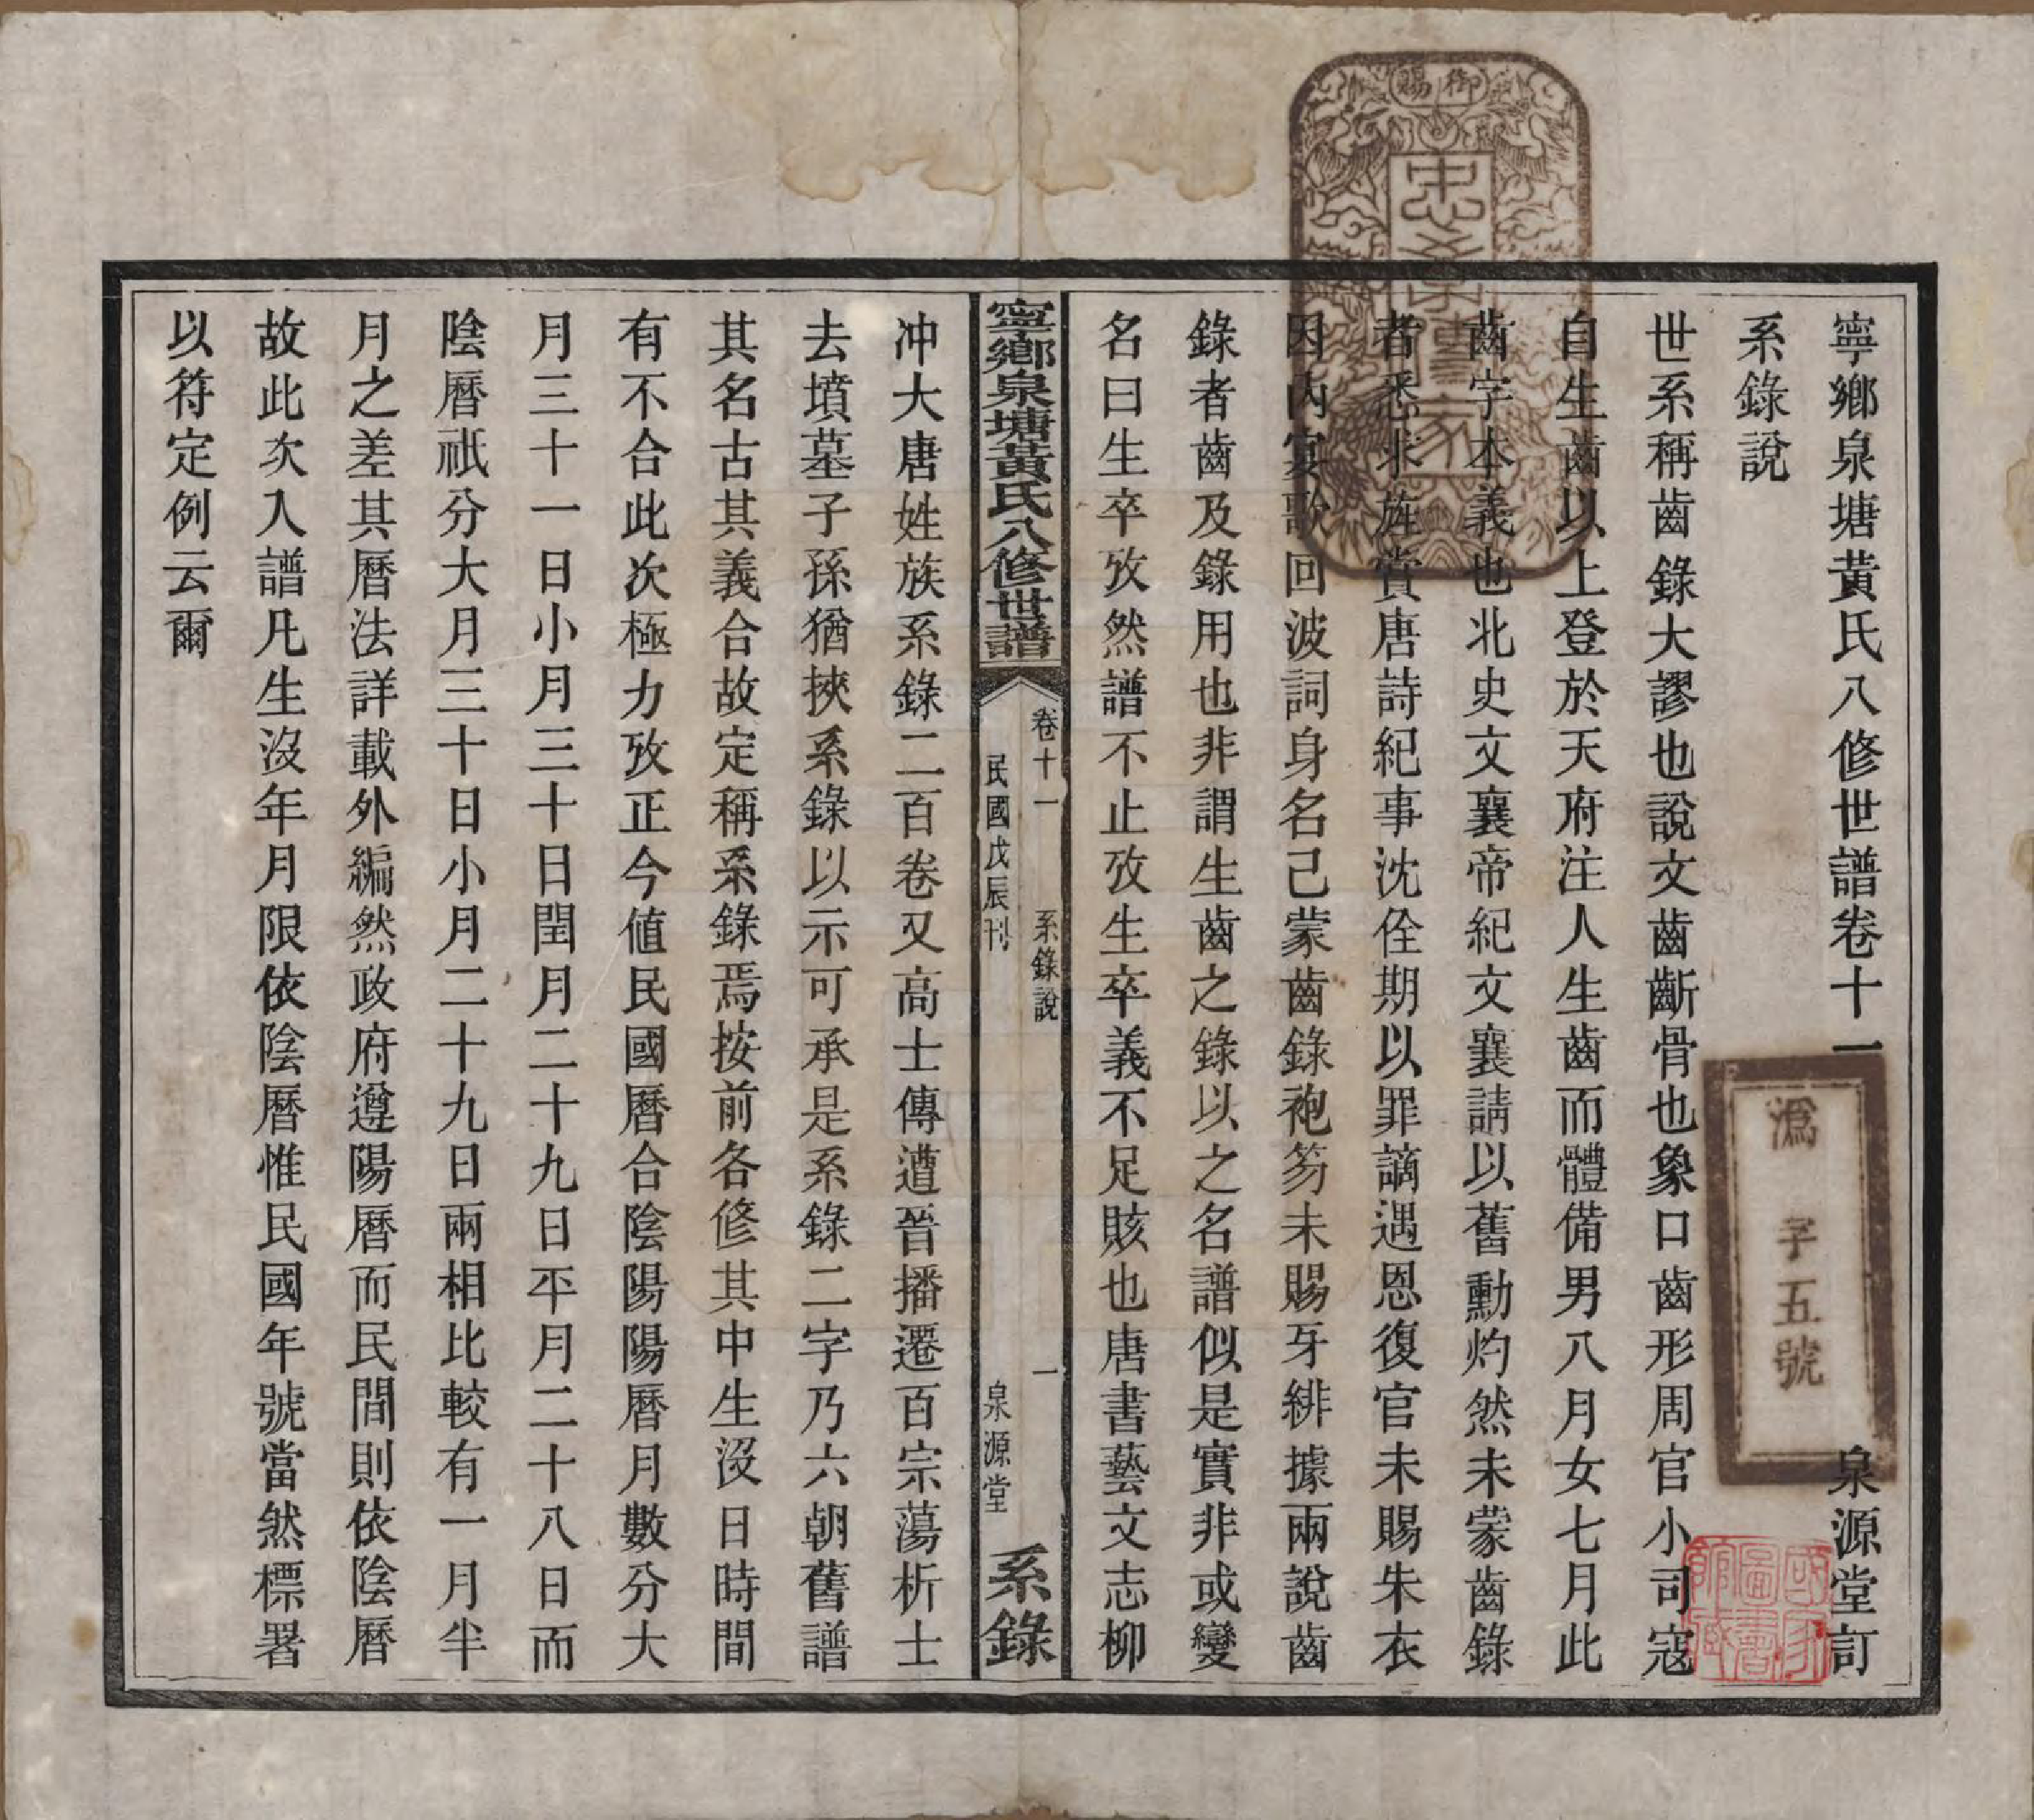 寧鄉泉塘黃氏八修世譜卷十一
泉源堂訂
系錄說
世系稱齒錄大謬也說文齒齗骨也象口齒形周官小司寇
自生齒以上登於天府注人生齒而體備男八月女七月此
齒字本義也北史文襄帝紀文襄請以舊勳灼然未蒙齒錄
者悉求旌賞唐詩紀事沈佺期以罪謫遇恩復官未賜朱衣
因內宴歌回波詞身名已蒙齒錄袍笏未賜牙緋據兩說齒
錄者齒及錄用也非謂生齒之錄以之名譜似是實非或變
名曰生卒攷然譜不止攷生卒義不足賅也唐書藝文志柳
寧鄉泉塘黃氏八修世譜
卷十一
系錄說
一
民國戊辰刊
泉源堂
系錄
冲大唐姓族系錄二百卷又高士傳遭晉播遷百宗蕩析士
去墳墓子孫猶挾系錄以示可承是系錄二字乃六朝舊譜
其名古其義合故定稱系錄焉按前各修其中生沒日時間
有不合此次極力攷正今值民國曆合陰陽陽曆月數分大
月三十一日小月三十日閏月二十九日平月二十八日而
陰曆祇分大月三十日小月二十九日兩相比較有一月半
月之差其曆法詳載外編然政府遵陽曆而民間則依陰曆
故此次入譜凡生沒年月限依陰曆惟民國年號當然標署
以符定例云爾
御賜
忠孝傳家
溈字五號
國家圖書館藏